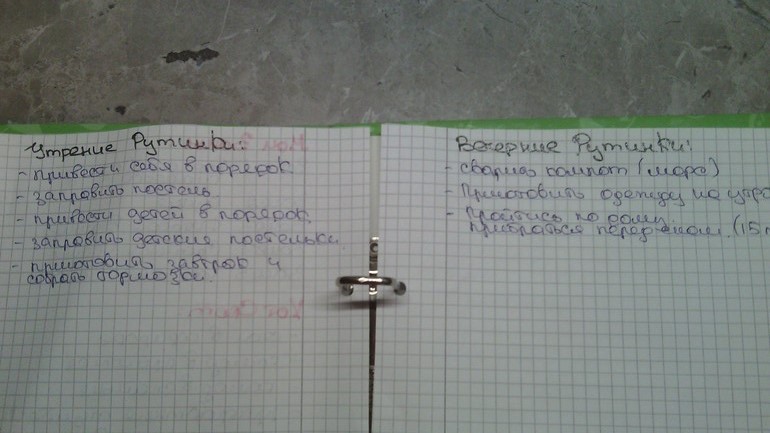 Утрение Рутинки:
- привести себя в порядок
- заправить постель
- привести детей в порядок
- заправить детские постельки
- приготовить завтрак и
собрать тормозки.
Вечерние Рутинки:
- сварить компот (морс)
- Приготовить одежду на утро
- Пройтись по дому
прибраться перед сном. (15